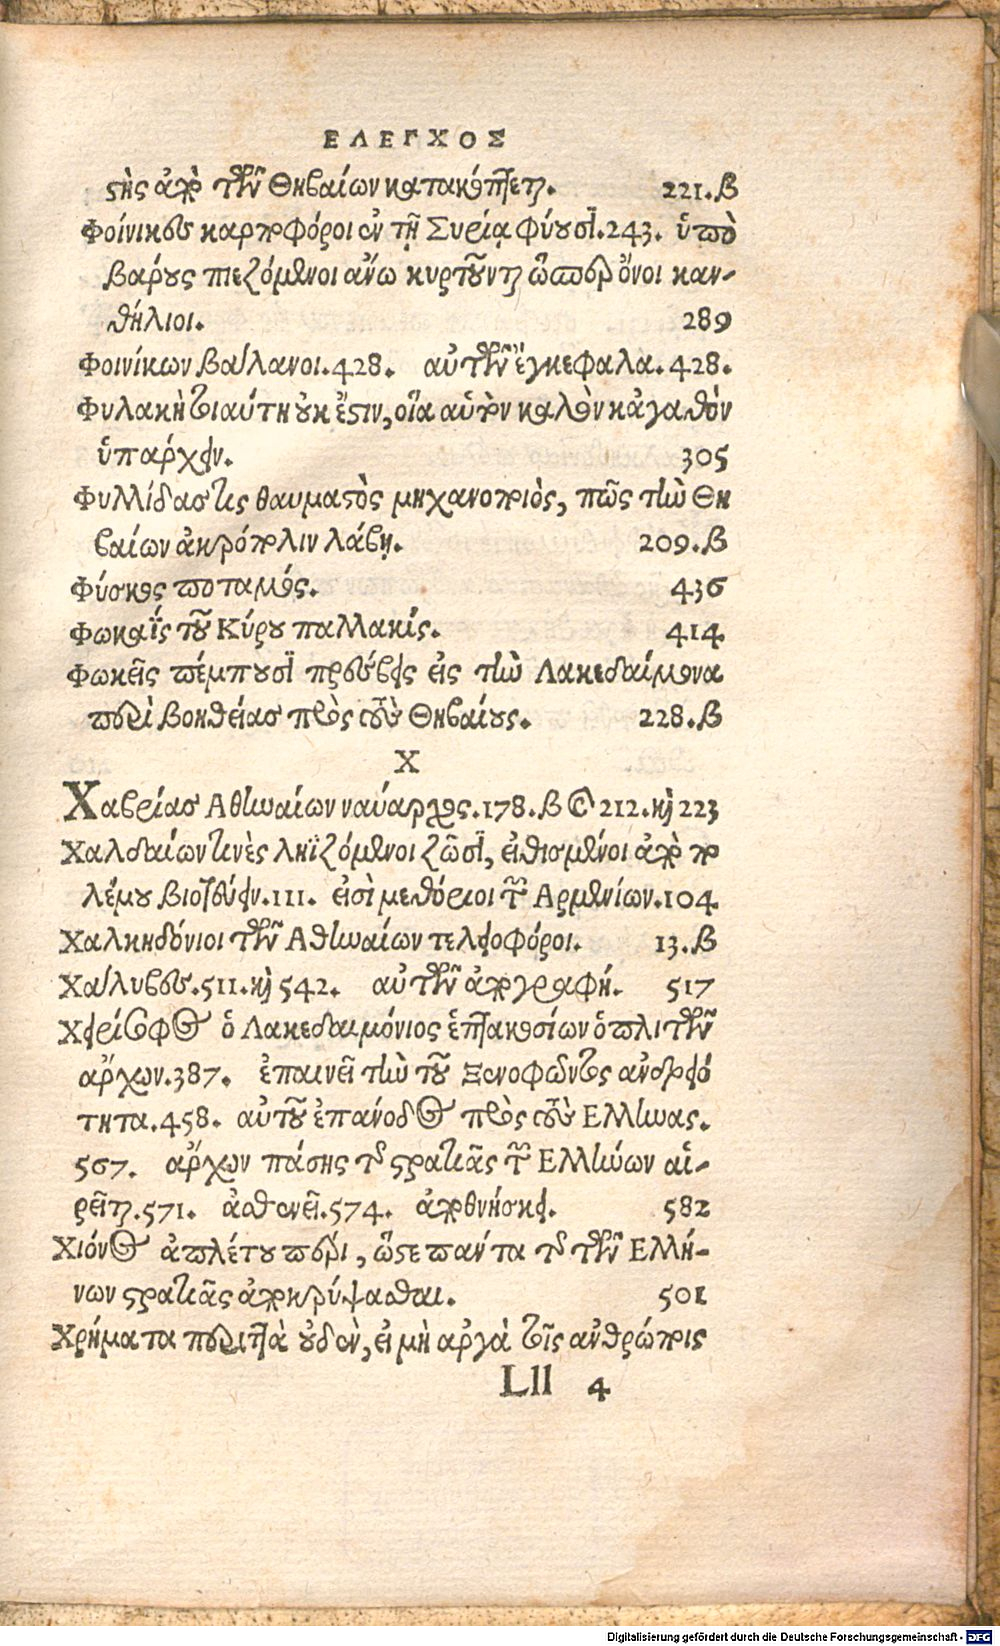 ΕΛΕΓΧΟΣ
στὴς ἀπὸ τῶν Θηβαίων κατακόπτεται. 221.β
Φοίνικες καρποφόροι ἐν τῇ Συρίᾳ φύουσι. 243. ὑπὸ
βάρους πιεζόμενοι ἄνω κυρτοῦνται ὥσπερ ὄνοι καν-
θήλιοι. 289
Φοινίκων βάλανοι. 428. αὐτῶν ἐγκέφαλα. 428.
Φυλακὴ τοιαύτη οὐκ ἔστιν, οἵα αὑτὸν καλὸν κἀγαθὸν
ὑπάρχειν. 305
Φυλλίδας τις θαυμαστὸς μηχανοποιὸς, πῶς τὴν Θη
βαίων ἀκρόπολιν λάβῃ. 209.β
Φύσκος ποταμός. 436
Φωκαῒς τοῦ Κύρου παλλακίς. 414
Φωκεῖς πέμπουσι πρέσβεις εἰς τὴν Λακεδαίμονα
περὶ βοηθείας πρὸς τοὺς Θηβαίους. 228.β
Χ
Χαβρίας Αθηναίων ναύαρχος. 178. β & 212. καὶ 223
Χαλδαίων τινὲς ληϊζόμενοι ζῶσι, εἰθισμένοι ἀπὸ πο
λέμου βιοτεύειν. 111. εἰσὶ μεθόριοι τῶν Αρμενίων. 104
Χαλκηδόνιοι τῶν Αθηναίων τελεοφόροι. 13.β
Χάλυβες. 511. καὶ 542. αὐτῶν ἀπογραφή. 517
Χειρίσοφος ὁ Λακεδαιμόνιος ἑπτακοσίων ὁπλιτῶν
ἄρχων. 387. ἐπαινεῖ τὴν τοῦ Ξενοφῶντος ἀνδρειό
τητα. 458. αὐτοῦ ἐπάνοδος πρὸς τοὺς Ελληνας.
567. ἄρχων πάσης τῆς στρατιᾶς τῶν Ελλήνων αἱ-
ρεῖται. 571. ἀσθενεῖ. 574. ἀποθνήσκει. 582
Χιόνος ἀπλέτου πέρι, ὥστε πάντα τὰ τῶν Ελλή-
νων στρατιᾶς ἀποκρύψασθαι. 501
Χρήματα περιττὰ οὐδὲν, εἰ μὴ ἀργὰ τοῖς ἀνθρώποις
Lll 4
Digitalisierung gefördert durch die Deutsche Forschungsgemeinschaft - DFG